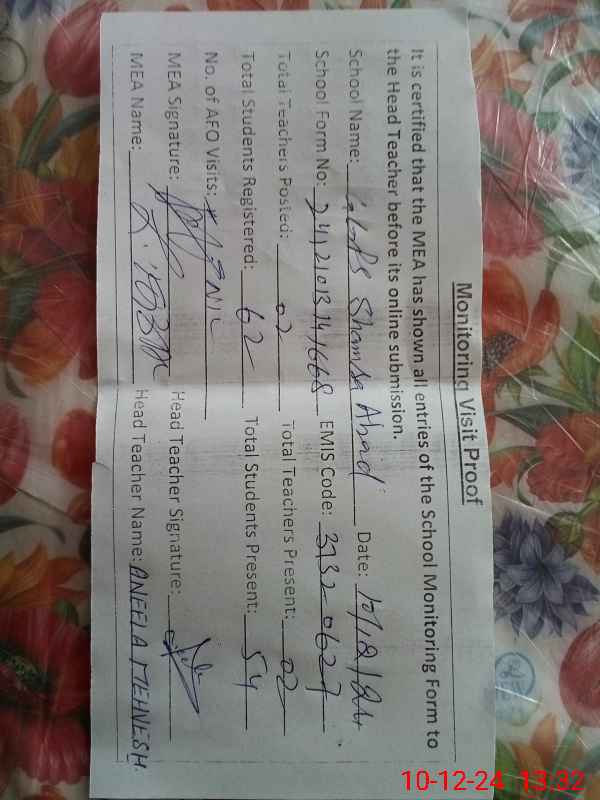 Monitoring Visit Proof
It is certified that the MEA has shown all entries of the School Monitoring Form to
the Head Teacher before its online submission.
School Name: Shamsa Abad Date: 10/12/24
School Form No: EMIS Code: 31320627
Total Teachers Posted: 02 Total Teachers Present: 02
Total Students Registered: 62 Total Students Present: 54
No. of AFO Visits: NIL
MEA Signature: Head Teacher Signature:
MEA Name: Head Teacher Name: ANEELA MEHNESH
10-12-24 13:32